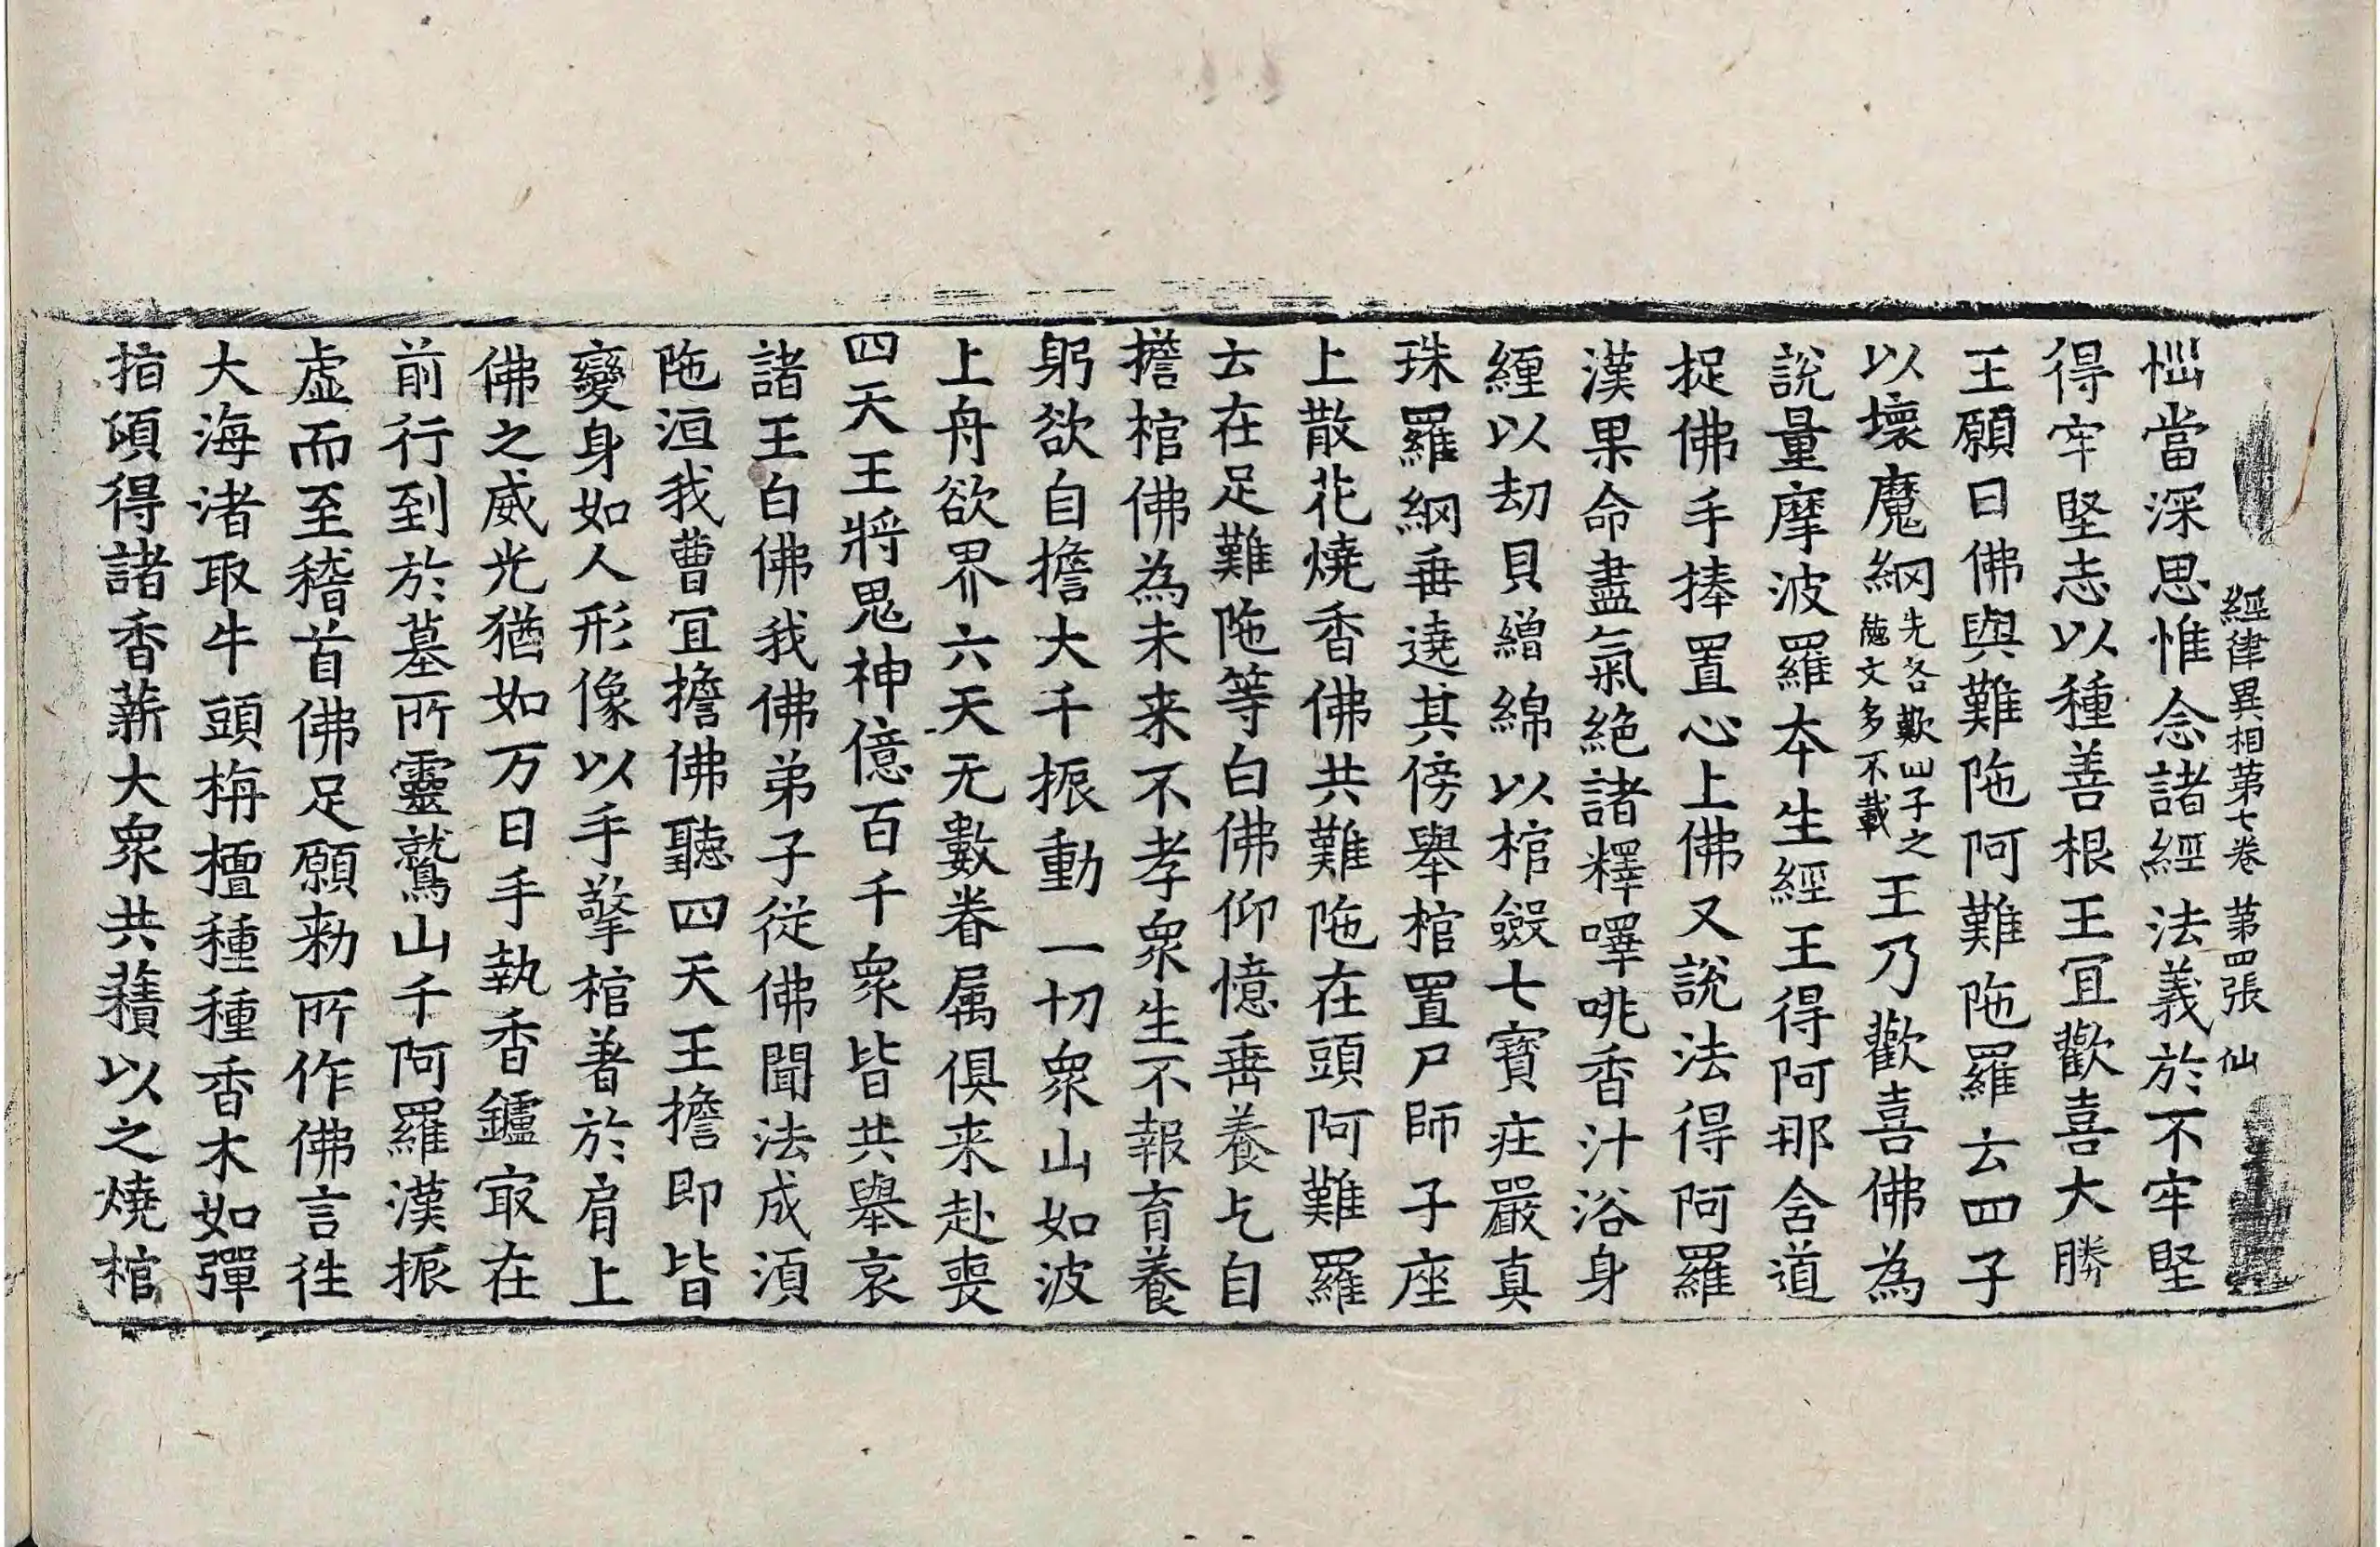 經律異相第七卷 第四張 仙
惱當深思惟念諸經法義於不牢堅
得牢堅志以種善根王冝歡喜大勝
王願曰佛與難陁阿難陁羅云四子
以壞魔網先各歎四子之德文多不載王乃歡喜佛為
說量摩波羅本生經王得阿那含道
捉佛手捧置心上佛又說法得阿羅
漢果命盡氣絕諸釋㘁咷香汁浴身
纏以劫貝繒綿以棺斂七寶庄嚴真
珠羅網垂遶其傍舉棺置尸師子座
上散花燒香佛共難陁在頭阿難羅
云在足難陁等白佛仰憶垂養乞自
擔棺佛為未来不孝衆生不報育養
躬欲自擔大千振動一切衆山如波
上舟欲界六天无數眷属俱来赴喪
四天王將鬼神億百千衆皆共舉哀
諸王白佛我佛弟子從佛聞法成湏
陁洹我曹冝擔佛聽四天王擔即皆
變身如人形像以手擎棺著於肩上
佛之威光猶如万日手執香鑪㝡在
前行到於墓所靈鷲山千阿羅漢振
虛而至稽首佛足願勑所作佛言往
大海渚取牛頭栴檀種種香木如彈
指頃得諸香薪大衆共䕆以之燒棺